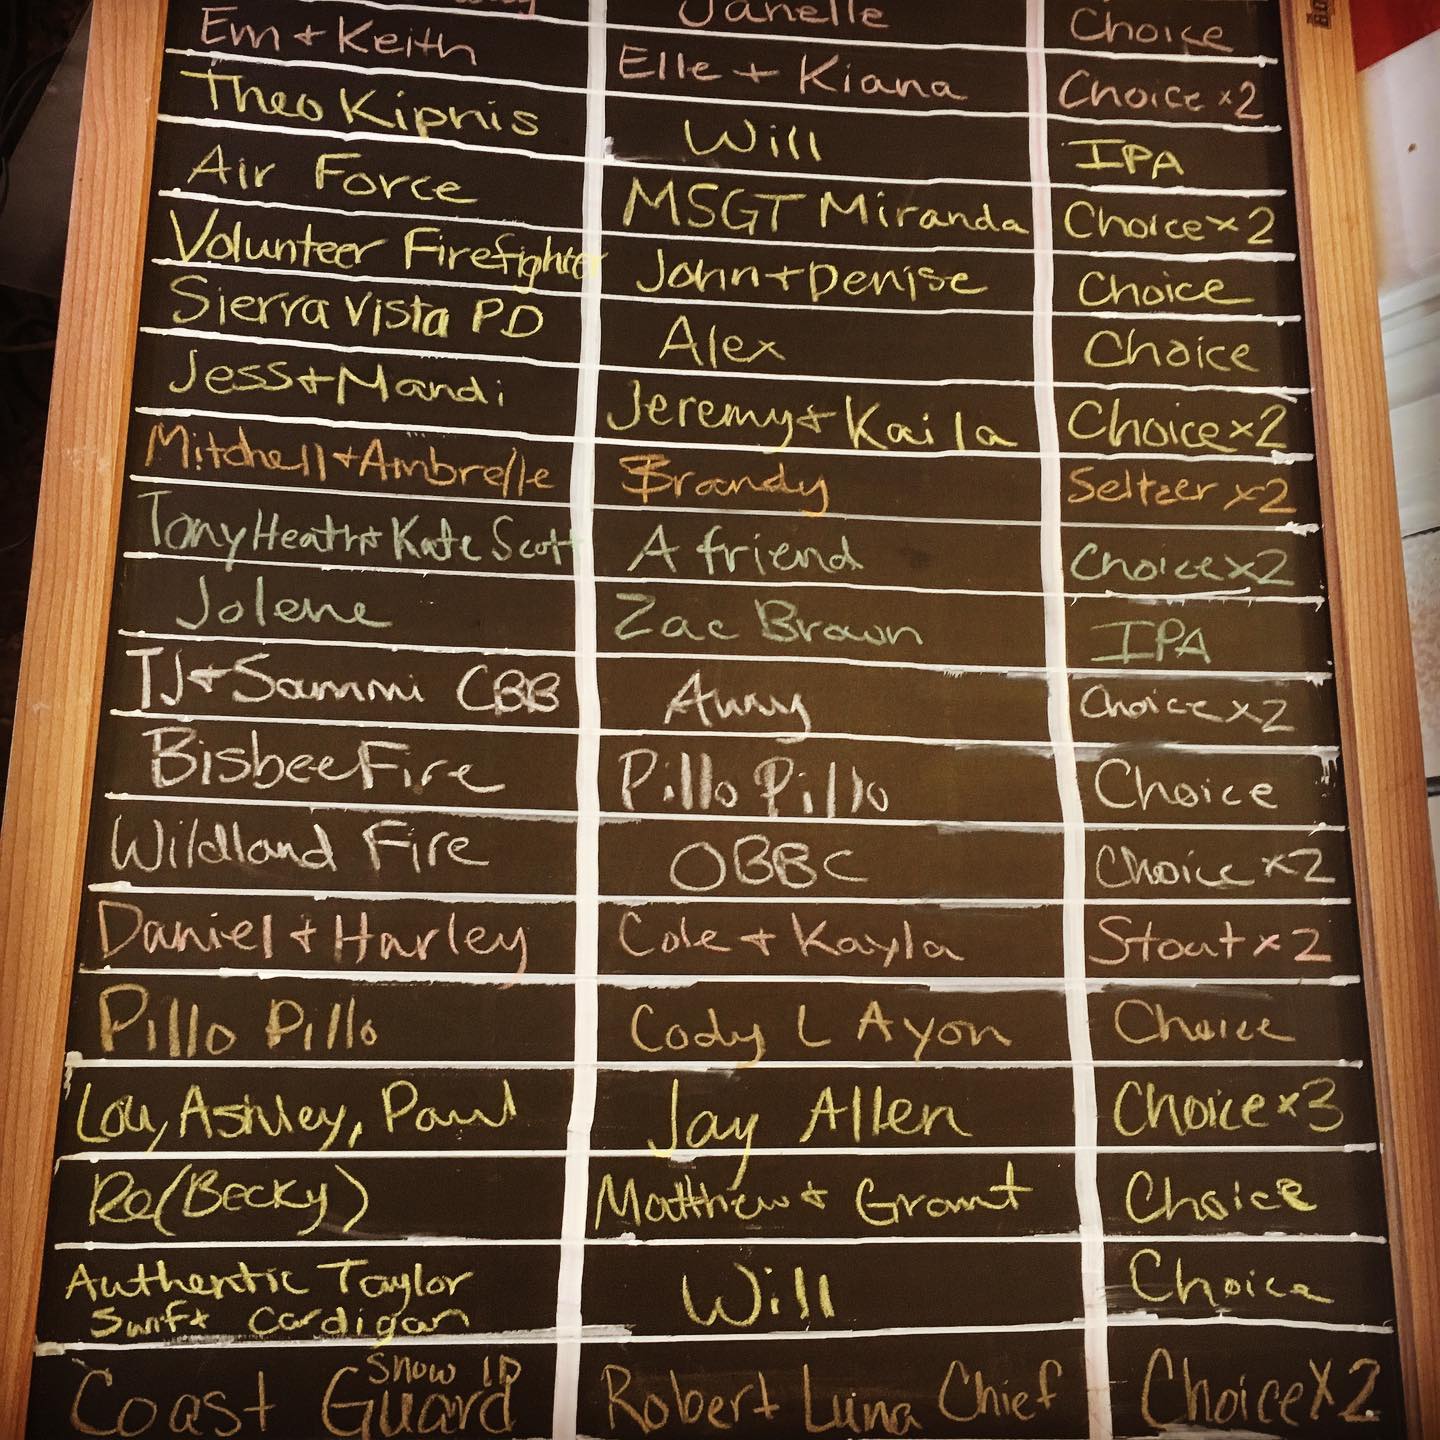 Janelle Choice
Em + Keith Elle + Kiana Choice x2
Theo Kipnis Will IPA
Air Force MSGT Miranda Choice x 2
Volunteer Firefighter John + Denise Choice
Sierra Vista PD Alex Choice
Jess + Mandi Jeremy + Kaila Choice x2
Mitchell + Ambrelle Brandy Seltzer x2
Tony Heath + Kate Scott A friend Choice x2
Jolene Zac Brown IPA
TJ + Sammi CBB Amy Choice x2
Bisbee Fire Pillo Pillo Choice
Wildland Fire OBBC Choice x2
Daniel + Harley Cole + Kayla Stout x 2
Pillo Pillo Cody L Ayon Choice
Lou, Ashley, Paul Jay Allen Choice x3
Re(Becky) Matthew + Grant Choice
Authentic Taylor Will Choice
Swift Cardigan
Show ID
Coast Guard Robert Luna Chief Choice X 2